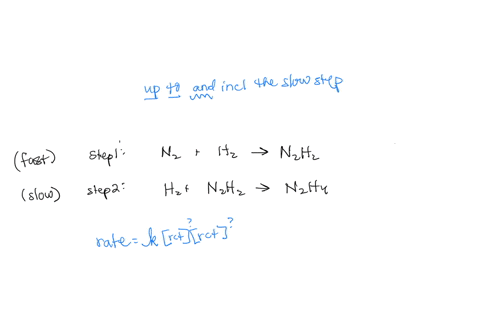 up to and incl the slow step
(fast) step1: N₂ + H₂ → N₂H₂
(slow) step2: H₂ + N₂H₂ → N₂H₄
rate = k [rct]^? [rct]^?